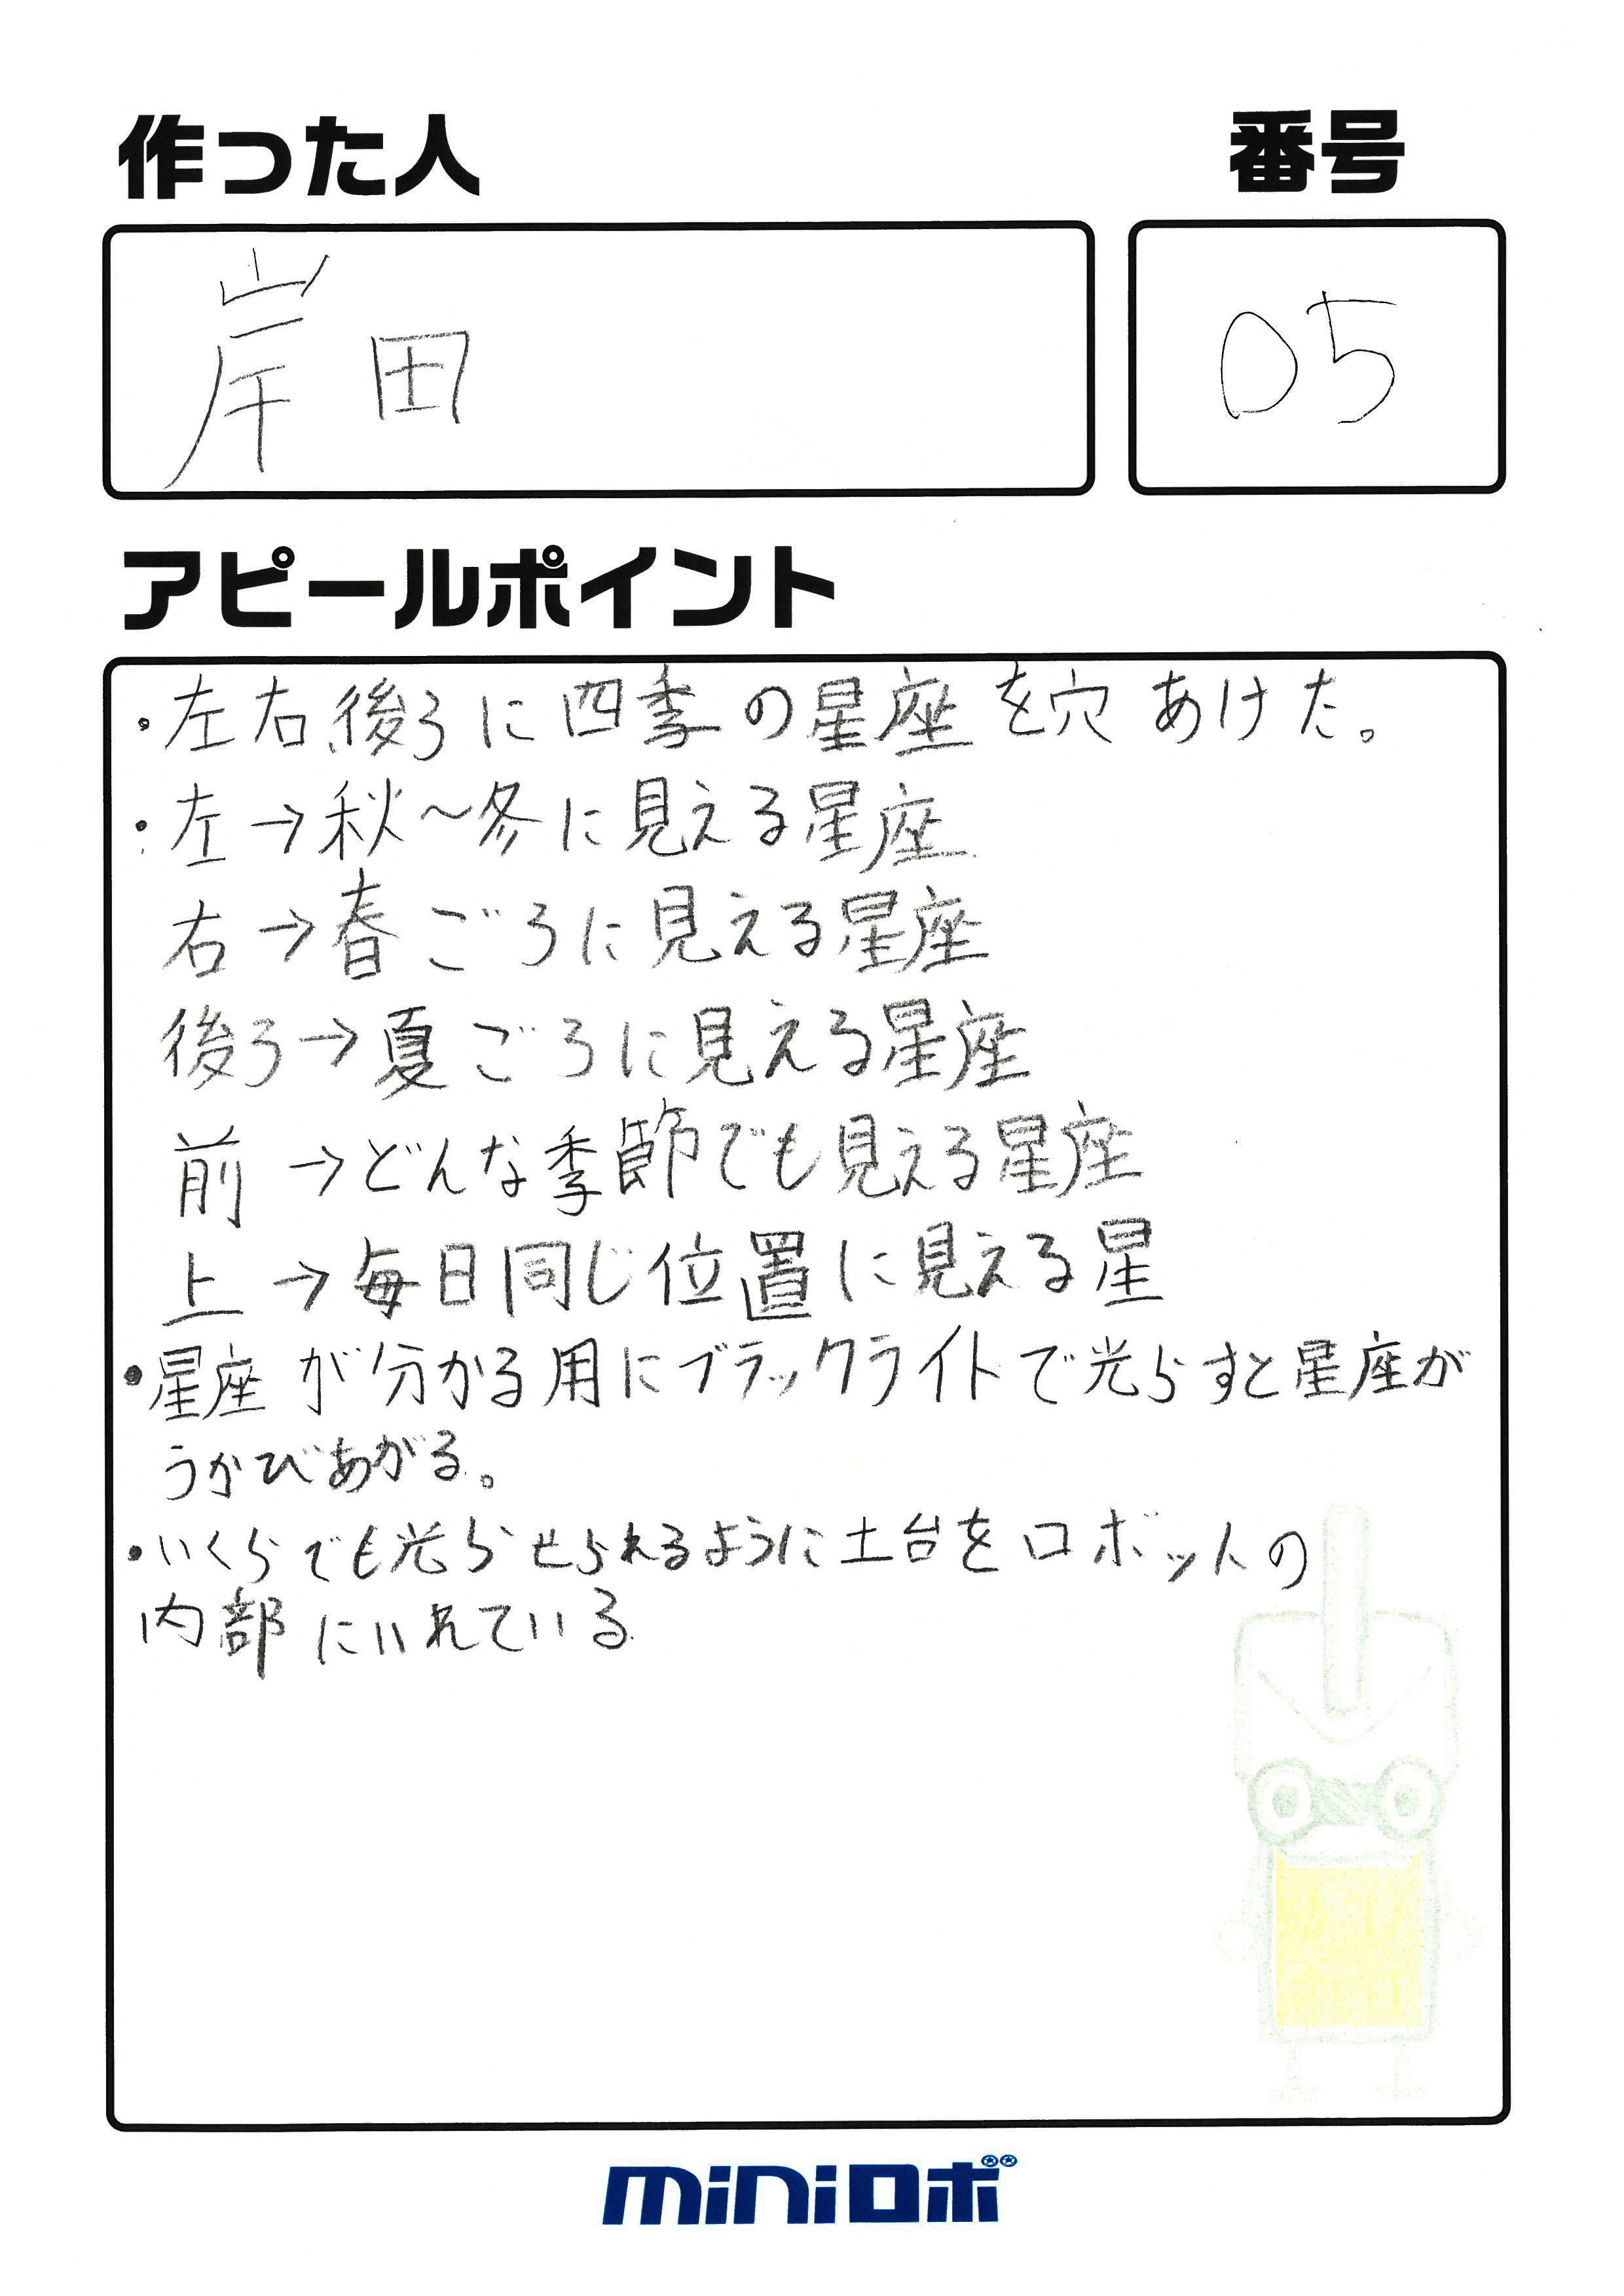 作った人
番号
岸田
05
アピールポイント
・左右、後ろに四季の星座を穴あけた。
・左→秋～冬に見える星座
右→春ごろに見える星座
後ろ→夏ごろに見える星座
前→どんな季節でも見える星座
上→毎日同じ位置に見える星
・星座が分かる用にブラックライトで光らすと星座が
うかびあがる。
・いくらでも光らせられるように土台をロボットの
内部にいれている
miniロボ